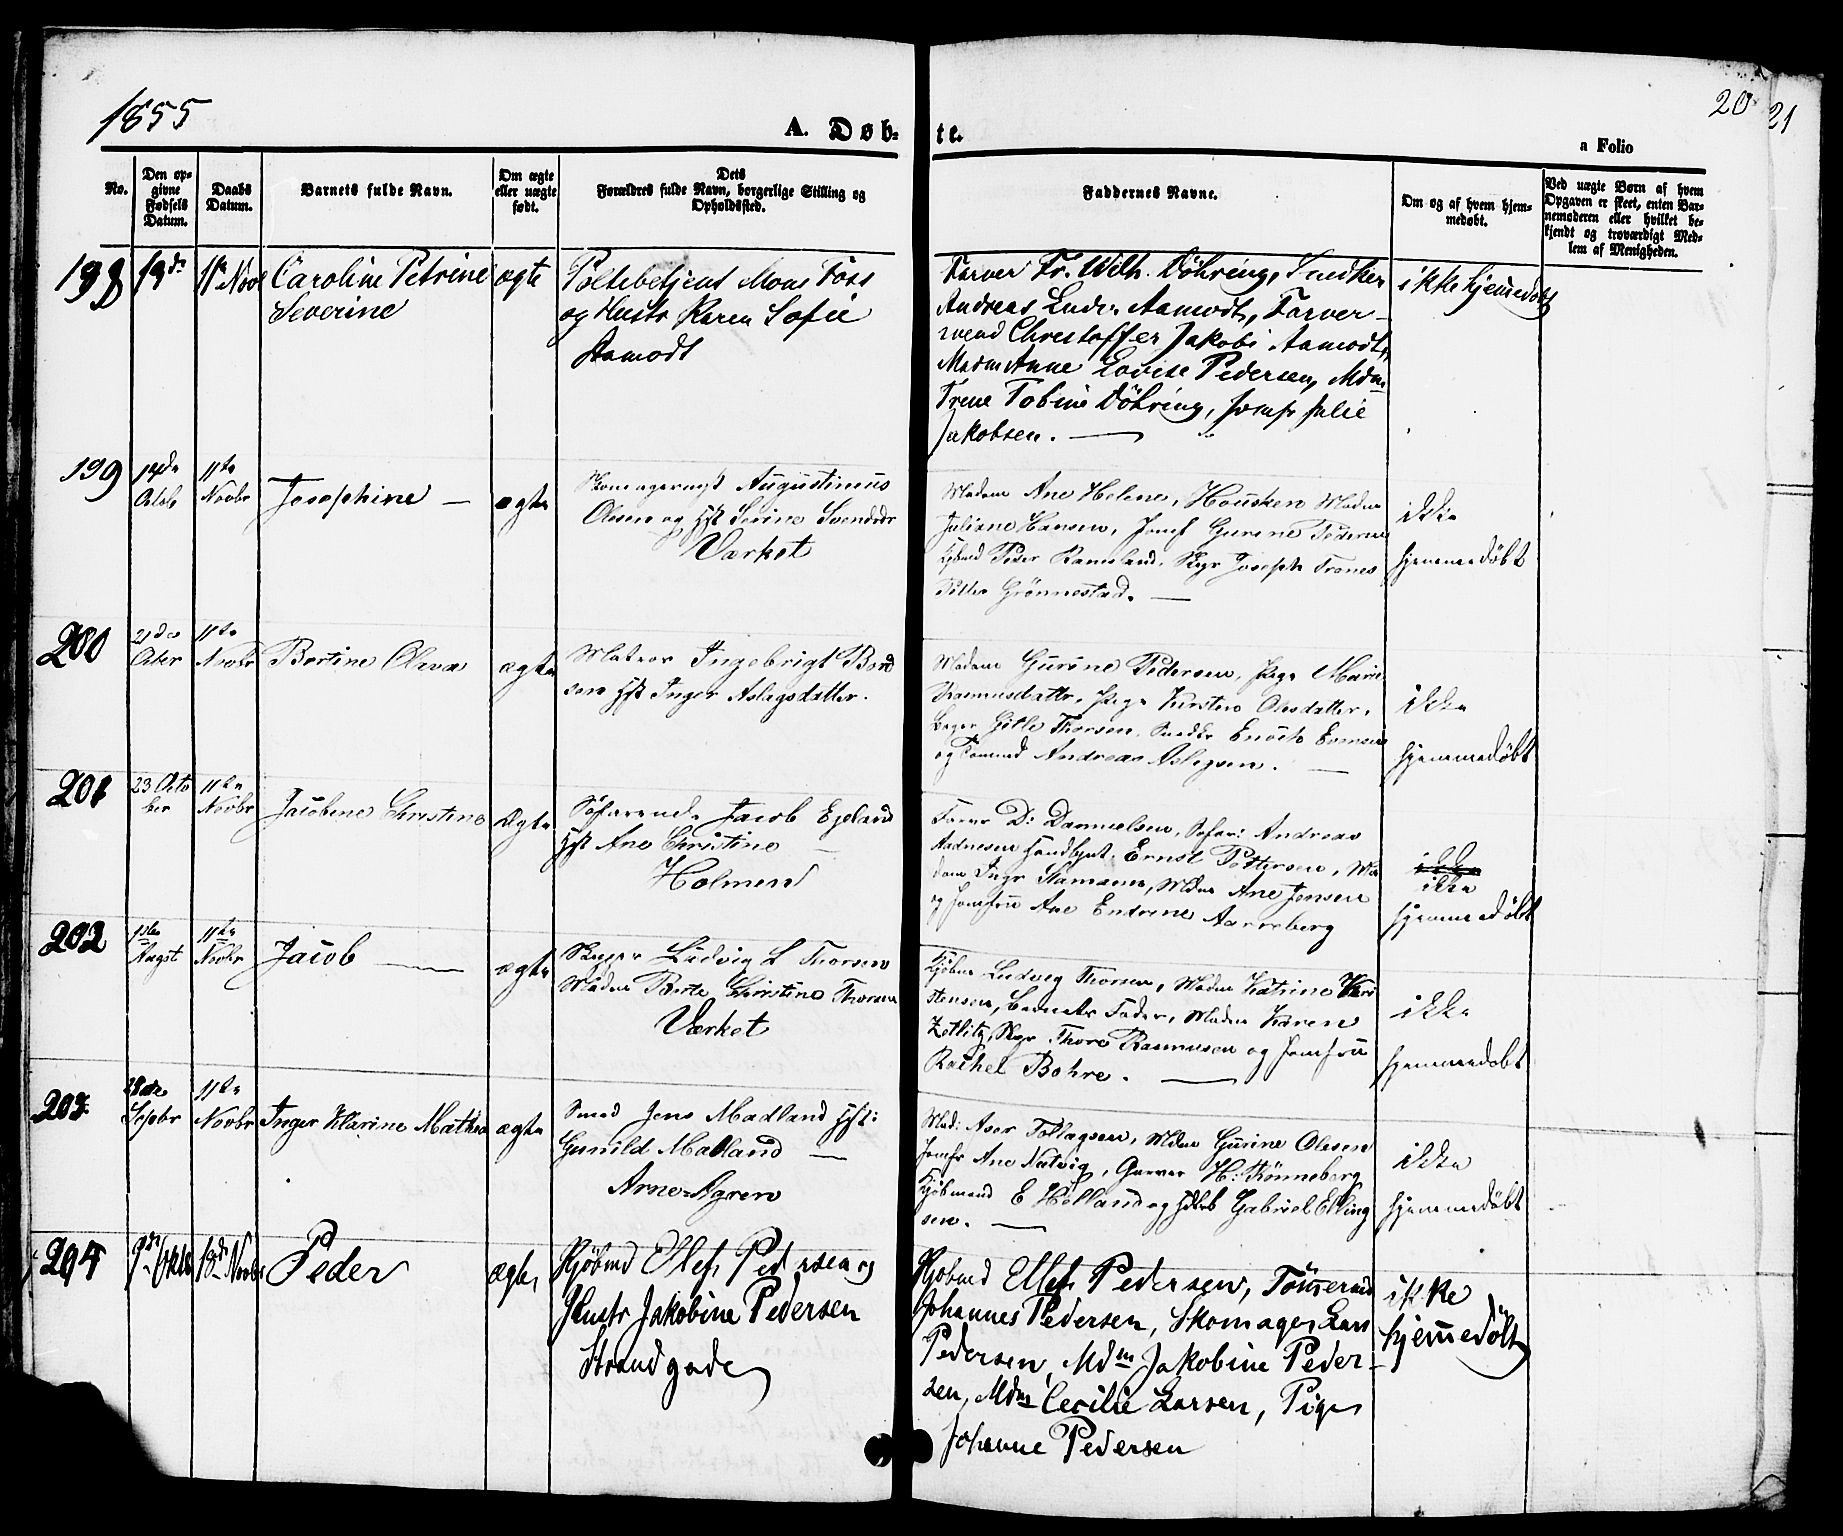 1855
A. Døb-
te.
20
21
a Folio
No.
Den op-
givne
Fødsels
Datum.
Daabs
Datum.
Barnets fulde Navn.
Om ægte
eller uægte
født.
Dets
Forældres fulde Navn, borgerlige Stilling og
Opholdssted.
Faddernes Navne.
Om og af hvem hjem-
medøbt.
Ved uægte Børn af hvem
Opgaven er skeet, enten Bar-
nemoderen eller hvilket be-
kjendt og troværdigt Med-
lem af Menigheden.
198
11te Nov
Caroline Petrine
Severine
ægte
Toldbetjent Mons Foss
og Hustr Karen Sofie
Aamodt
Farver Fr. Wilh. Döhring, Snedker
Andreas Endr. Aamodt, Farver-
svend Christoffer Jakobs Aamodt,
Madm Anne Lovise Pedersen, Mdm
Trene Tobine Döhring, Jomfr Julie
Jakobsen.
ikke hjemedøbt
199
14de
Octob
11te
Novbr
Josephine
ægte
Skomagermst Augustinius
Olsen og Hst Serine Svendsdr
Værket
Madam Ane Helene Housken Madm
Juliane Hansen, Jomf Gurine Pedersen
Kjbmd Peder Ramsland, Skpr Joseph Tranes
Peller Grönnestad.
ikke
hjemmedøbt
200
21de
Octer
11te
Novbr
Bertine Oleva
ægte
Matros Ingebrigt Bend
sen Hst Inger Aslegsdatter.
Madam Gurine Pedersen, Pige Marie
Rasmusdattr, Pige Kirsten Olesdatter,
Bager Gitle Thorsen, Snedkr Enoch Evensen
og Tommd Andreas Aslegsen.
ikke
hjemmedøbt
201
23 Octo
ber
11te
Novbr
Jacobine Christine
Ægte
Söfarende Jacob Egeland
Hst Ane Christine
Holmen
Farver D: Danielsen, Söfar: Andreas
Aadnesen Handlbjnt. Ernst Pettersen, Ma
dam Ingr Hamann, Mdm Ane Jensen
og Jomfru Ane Endrine Aarreberg
ikke
ikke
hjemmedøbt
202
1ste
Augst
11te
Novbr
Jacob
ægte
Skippr Ludvig L Thorsen
Madm Berte Christine Thorsen
Værket
Kjöbm Ludvig Thorsen, Madm Katrine Kri
stensen, Barnets Fader, Madm Karen
Zetlitz, Skpr Thore Rasmusen og Jomfru
Rachel Bohre.
ikke
hjemmedøbt
203
28de
Sepbr
11te
Novbr
Inger Klarine Mathea
ægte
Smed Jens Madland Hst:
Gunild Madland
Arne-Ageren
Mad: Aser Tollagsen, Mdm Gurine Olesen
Jomfr Ane Natvig, Garver H: Rönneberg
Kjöbmand E Hölland og Hdlsb Gabriel Elling
sen.
ikke
hjemmedøbt
204
9de Oktb
18de Novbr
Peder
ægte
Kjöbmd Ellef Pedersen og
Hustr Jakobine Pedersen
Strandgade
Kjöbmd Ellef Pedersen, Tömermd
Johannes Pedersen, Skomager Lars
Pedersen, Mdm Jakobine Peder-
sen, Mdm Cecilie Larsen, Pige
Johanne Pedersen
ikke
hjemedøbt